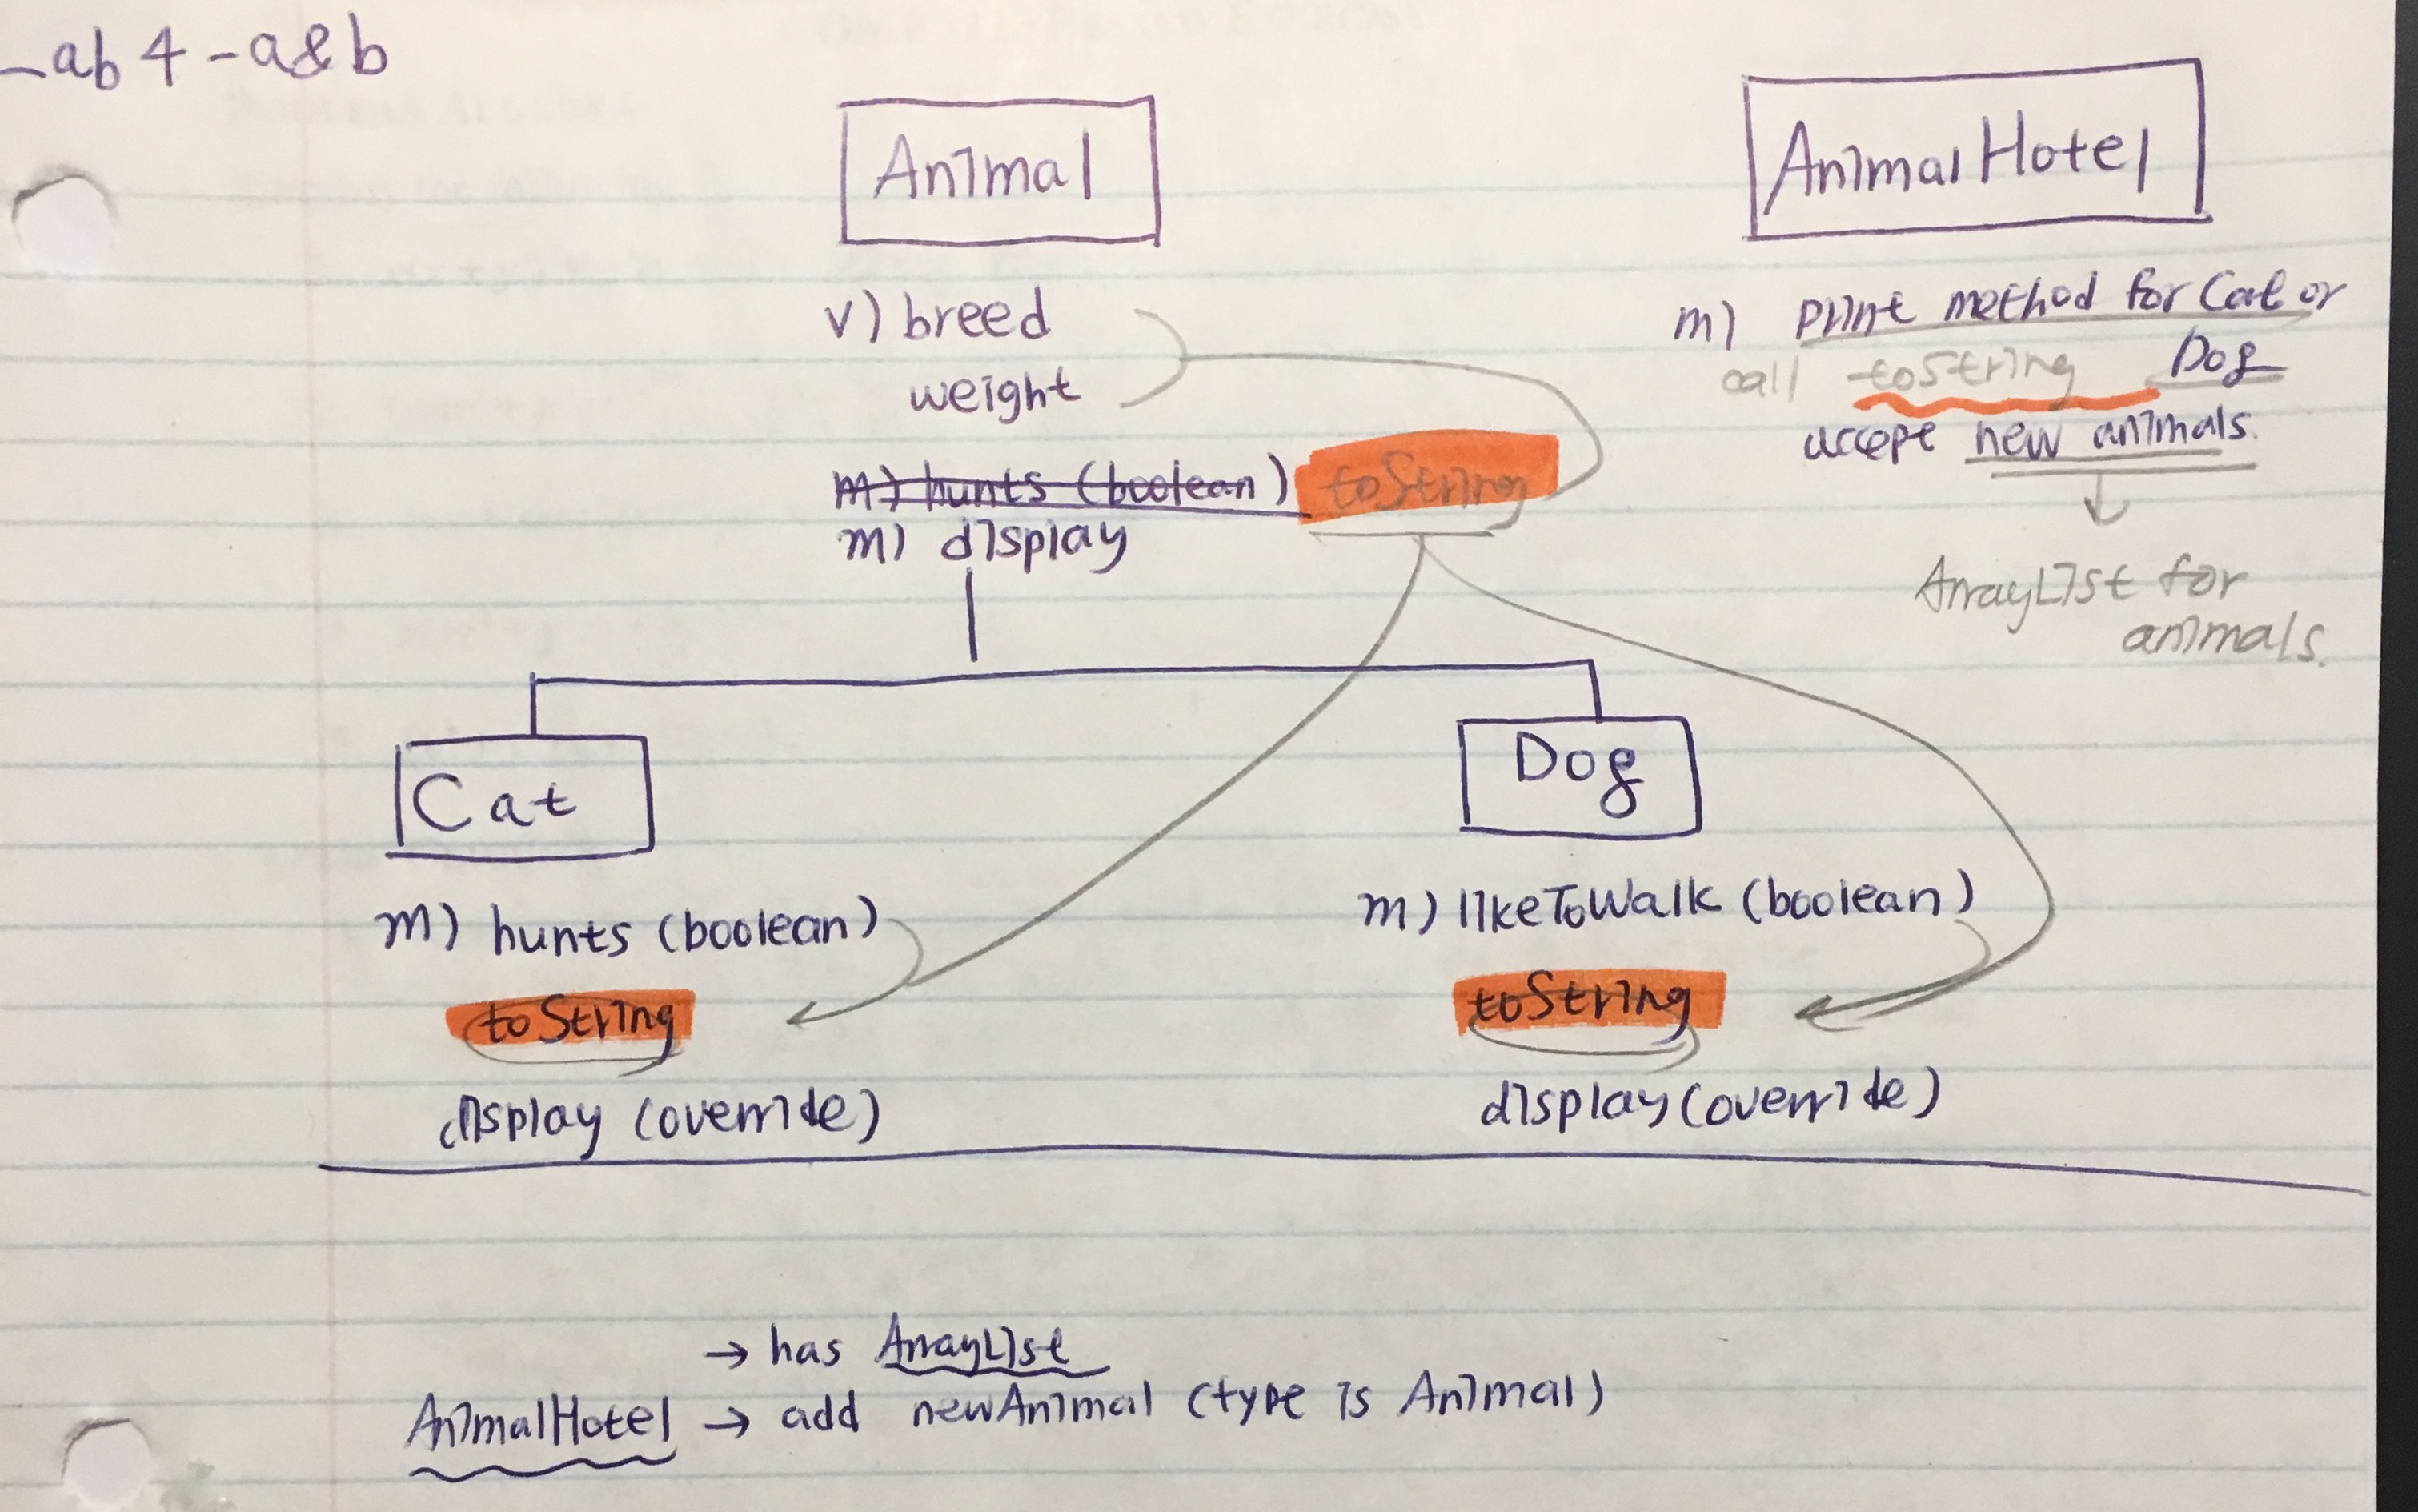 ab 4 - a&b
Animal
v) breed
weight
m) hunts (boolean) toString
m) display
AnimalHotel
m) print method for Cat or
call toString Dog
accept new animals.
ArrayList for
animals.
Cat
m) hunts (boolean)
toString
display (override)
Dog
m) likeToWalk (boolean)
toString
display (override)
→ has ArrayList
AnimalHotel → add newAnimal (type is Animal)